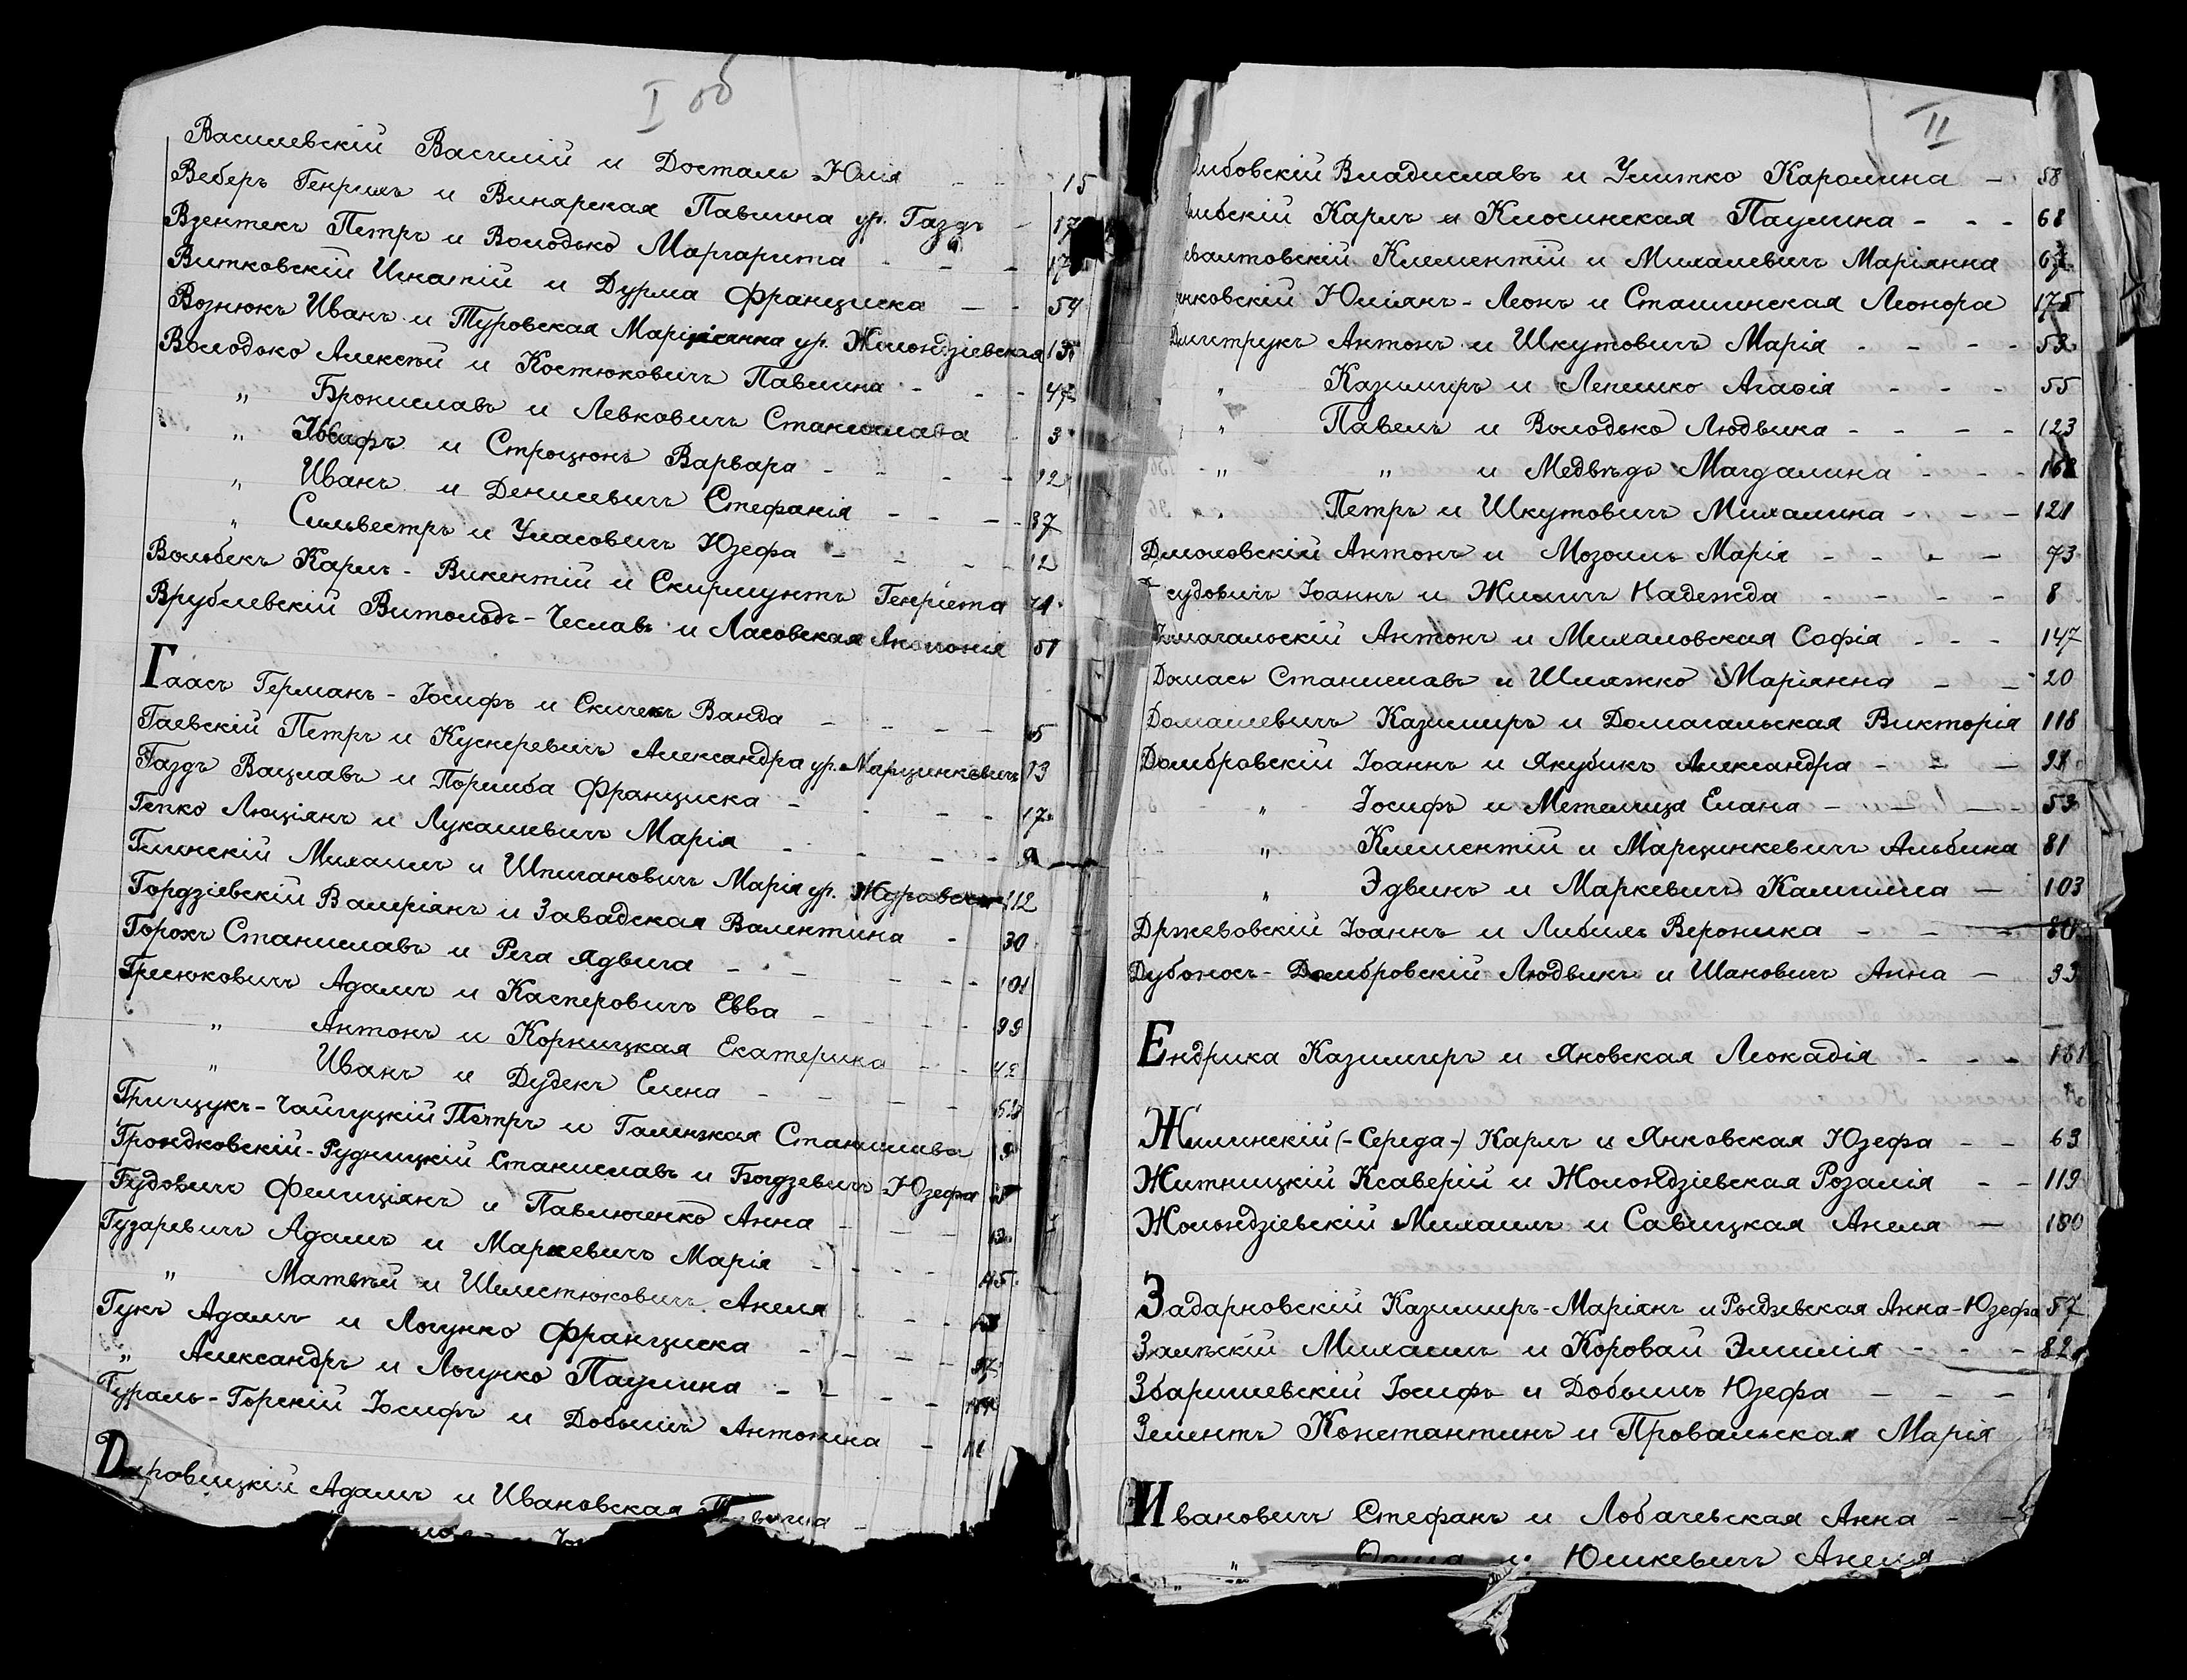 I об
Василевскій Василій и Досталь Юлія - - 15
Веберъ Генрихъ и Винярская Павлина ур. Газдъ - 17
Взентекъ Петръ и Володько Маргарита - - - 17
Витковскій Игнатій и Дурма Франциска - - 54
Вознюкъ Иванъ и Туровская Маріанна ур. Жолондзіевская
Володько Алексѣй и Костюковичъ Павлина - - - 47
„ Брониславъ и Левковичъ Станислава - 3
„ Іосифъ и Строцюнъ Варвара - - - 12
„ Иванъ и Денисевичъ Стефанія - - - 37
„ Сильвестръ и Уласовичъ Юзефа - - - - 12
Вольбекъ Карлъ - Викентій и Скирмунтъ Генріета
Врублевскій Витольдъ - Чеславъ и Ласовская Антонія 51
Гаасъ Германъ - Іосифъ и Скичекъ Ванда - - - -
Гаевскій Петръ и Кускеревичъ Александра ур. Марцинкевичъ
Газдъ Вацлавъ и Поремба Франциска - - - - 17
Гепко Люціянъ и Лукашевичъ Марія - - - -
Глинскій Михаилъ и Шпигановичъ Марія ур. 112
Гордзіевскій Валеріянъ и Завадская Валентина - 30
Горохъ Станиславъ и Рега Ядвига - - - - - 101
Грисюковичъ Адамъ и Касперовичъ Евва - - - - 99
„ Антонъ и Корницкая Екатерина - - 42
„ Иванъ и Дудекъ Елена - - - - -
Грищукъ - Чайчуцкій Петръ и Галицкая Станислава
Грондковскій - Рудницкій Станиславъ и Богдзевичъ Юзефа
Гудовичъ Фелиціянъ и Павлюченко Анна - - -
Гузаревичъ Адамъ и Маркевичъ Марія - - - -
„ Матвѣй и Шелестюковичъ Анеля - - -
Гукъ Адамъ и Логунко Франциска - - - -
„ Александръ и Логунко Паулина - - - -
Гураль - Горскій Іосифъ и Добышъ Антонина -
Адамъ и Ивановская
II
Владиславъ и Улитко Каролина - 58
Карлъ и Клосинская Паулина - - - 68
Клементій и Михалевичъ Маріянна
Юліянъ - Леонъ и Сташинская Леонора 175
Дмитрукъ Антонъ и Шкутовичъ Марія - - - - 53
„ Казимиръ и Лепешко Агафія - - - 55
„ Павелъ и Володько Людвика - - - - 123
„ „ и Медвѣдь Магдалина - - - 168
„ Петръ и Шкутовичъ Михалина - - - 121
Дмоховскій Антонъ и Мозоль Марія - - - - 73
Іоаннъ и Жиличъ Надежда - - - - 8
Антонъ и Михаловская Софія - - - 147
Домась Станиславъ и Шляжко Маріянна - - 20
Домашевичъ Казимиръ и Домагальская Викторія 118
Домбровскій Іоаннъ и Якубикъ Александра - - -
„ Іосифъ и Метелица Елена - - - - 53
„ Климентій и Марцинкевичъ Альбина 81
„ Эдвинъ и Маркевичъ Камилла - 103
Држевовскій Іоаннъ и Либиль Вероника - - - 80
Дубонось - Домбровскій Людвикъ и Шановичъ Анна - 33
Ендрика Казимиръ и Яновская Леокадія - - - 151
Жилинскій (- Середа -) Карлъ и Янковская Юзефа - - 63
Житницкій Ксаверій и Жолондзіевская Розалія - - 119
Жолондзіевскій Михаилъ и Савицкая Анеля - 180
Задарновскій Казимиръ - Маріянъ и Рыдзевская Анна - Юзефа 57
Залѣскій Михаилъ и Коровай Эмилія - - - 82
Збаришевскій Іосифъ и Добышъ Юзефа - - -
Зелентъ Константинъ и Провальская Марія
Ивановичъ Стефанъ и Лобачевская Анна - -
„ и Юшкевичъ Анеля